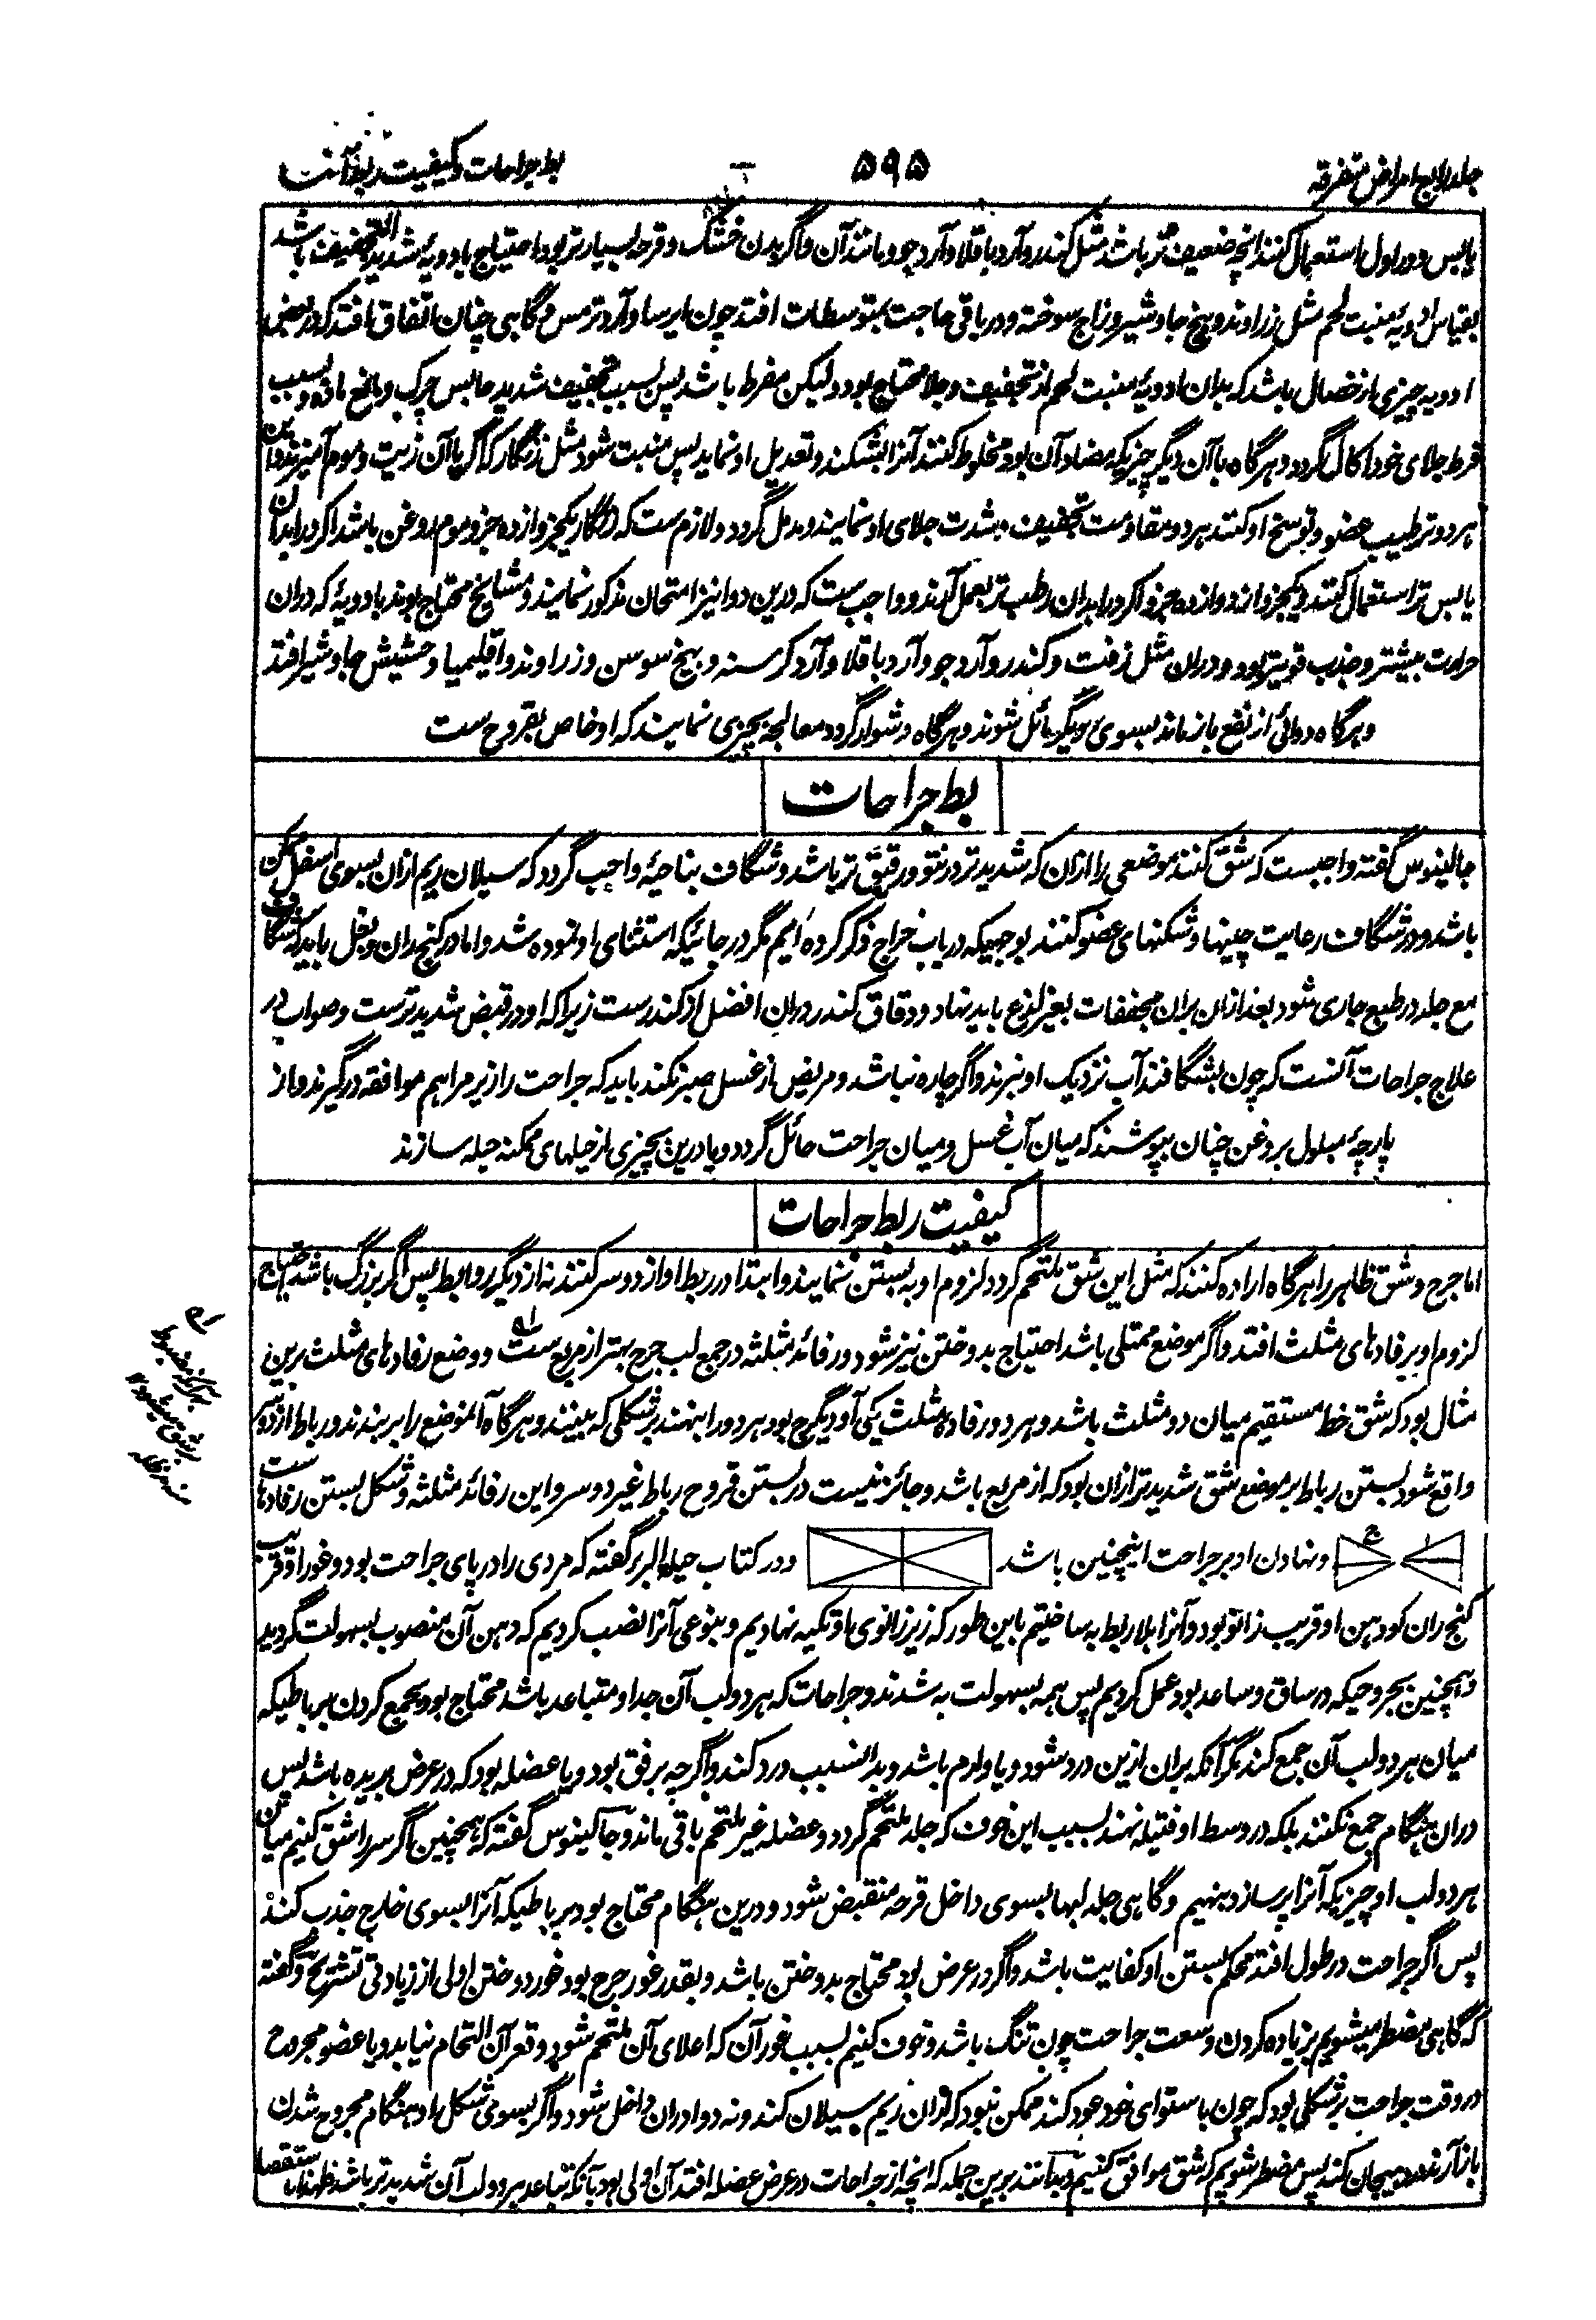 جلد رابع امراض متفرقه
۵۹۵
بط جراحات و کیفیت ربط آنست
یابس در اول استعمال کنند انچه ضعیف تر باشد مثل کندر و آرد باقلا و آرد جو و مانند آن و اگر بدن خشک و قرحه بسیار تر بود احتیاج بادویه شدید التجفیف باشد
بقیاس ادویه منبت لحم مثل زراوند و بیخ جاوشیر و زاج سوخته و در باقی حاجت بمتوسطات افتد چون ایرسا و آرد ترمس و گاهی چنان اتفاق افتد که در بعضی
ادویه چیزی از خصال باشد که بدان ادویه منبت لحم از تجفیف و جلا محتاج بود و لیکن مفرط باشد پس بسبب تجفیف شدید حابس چرک و مانع ماده و بسبب
فرط جلای خود اکال گردد و هرگاه با آن دیگر چیزیکه مضاد آن بود مخلوط کنند آنرا بشکند و تعدیل او نماید پس منبت شود مثل زنگار که اگر با آن زیت و موم آمیزند و این
هر دو ترطیب عضو و توسخ او کنند هر دو مقاومت تجفیف و شدت جلای او نمایند و مدمل گردد و لازم ست که زنگار یکجزو از ده جزو موم روغن باشد اگر در ابدان
یابس تر استعمال کنند و یکجزو از دوازده جزو اگر در ابدان رطب تر بعمل آرند و واجب ست که درین دوا نیز امتحان مذکور نمایند و مشایخ محتاج بوند بادویه که دران
حرارت بیشتر و جذب قویتر بود و دران مثل زفت و کندر و آرد جو و آرد باقلا و آرد کرسنه و بیخ سوسن و زراوند و اقلیمیا و حشیش جاوشیر افتد
و هرگاه دوائی از نفع باز ماند بسوی دیگر مائل شوند و هرگاه دشوار گردد معالجه بچیزی نمایند که او خاص بقروح ست
بط جراحات
جالینوس گفته واجبست که شق کنند موضعی را ازان که شدید تر در نتو و رقیق تر باشد و شگاف بناحیه واجب گردد که سیلان ریم ازان بسوی اسفل ممکن
باشد و در شگاف رعایت چینها و شکنهای عضو کنند بوجهیکه در باب خراج ذکر کرده ایم مگر در جائیکه استثنای او نموده شد و اما در کنج ران و بغل باید که شگاف
مع جلد در طبع جاری شود بعد ازان بران مجففات بغیر لذع باید نهاد و دقاق کندر دران افضل از کندرست زیرا که او در قبض شدید ترست و صواب در
علاج جراحات آنست که چون بشگافند آب نزدیک او نبرند و اگر چاره نباشد و مریض از غسل صبر نکند باید که جراحت را زیر مراهم موافقه در گیرند و از
پارچه مبلول بروغن چنان بپوشند که میان آب غسل و میان جراحت حائل گردد و یا درین بچیزی از حیلهای ممکنه حیله سازند
کیفیت ربط جراحات
اما جرح و شق ظاهر را هرگاه اراده کنند که مثل این شق ملتحم گردد لزوم او به بستن نمایند و ابتدا در ربط او از دو سر کنند نه از دیگر روابط پس اگر بزرگ باشد احتیاج
لزوم او برفادهای مثلث افتد و اگر موضع ممتلی باشد احتیاج بدوختن نیز شود و رفائد مثلثه در جمع لب جرح بهتر از مربع ست و وضع رفادهای مثلث برین
مثال بود که شق خط مستقیم میان دو مثلث باشد و هر دو رفاده مثلث یکی آ و دیگر ج بود هر دو را بنهند بر شکلی که ببینند و هرگاه آنموضع را بر بندند و رباط از دو سر
واقع شود بستن رباط بر موضع شق شدید تر ازان بود که از مربع باشد و جائز نیست در بستن قروح رباط غیر دو سر و این رفائد مثلثه و شکل بستن رفادها ست
ا ج و نهادن او بر جراحت اینچنین باشد و در کتاب حیلة البرء گفته که مردی را در پای جراحت بود و غور او قریب
کنج ران که دهن او قریب زانو بود و آنرا بلا ربط به ساختیم باین طور که زیر زانوی او تکیه نهادیم و بنوعی آنرا نصب کردیم که دهن آن منصوب بسهولت گردید
و همچنین بجروحیکه در ساق و ساعد بود عمل کردیم پس همه بسهولت به شدند و جراحات که هر دو لب آن جدا و متباعد باشد محتاج بود بجمع کردن بر باطیکه
میان هر دو لب آن جمع کند مگر آنکه بران ازین درد شود و یا وارم باشد و بدانسبب درد کند و اگرچه برفق بود و یا عضله بود که در عرض بریده باشد پس
دران هنگام جمع نکنند بلکه در وسط او فتیله نهند بسبب این خوف که جلد ملتحم گردد و عضله غیر ملتحم باقی ماند و جالینوس گفته که همچنین اگر سر را شق کنیم میان
هر دو لب او چیزیکه آنرا پر سازد بنهیم و گاهی جلد لبها بسوی داخل قرحه منقبض شود و درین هنگام محتاج بود بر باطیکه آنرا بسوی خارج جذب کند
پس اگر جراحت در طول افتد محکم بستن او کفایت باشد و اگر در عرض بود محتاج بدوختن باشد و بقدر غور جرح بود خورد دوختن اولی از زیادتی تشریح و گفته
که گاهی مضطر میشویم بزیاده کردن وسعت جراحت چون تنگ باشد و خوف کنیم بسبب غور آن که اعلای آن ملتحم شود و قعر آن التحام نیابد و یا عضو مجروح
در وقت جراحت بر شکلی بود که چون باستوای خود عود کند ممکن نبود که ازان ریم سیلان کند و نه دوا دران داخل شود و اگر بسوی شکل او هنگام مجروح شدن
باز آرند درد هیجان کند پس مضطر شویم که شق موافق کنیم و بدانند برین جمله که انچه از جراحات در عرض عضله افتد آن اولی بود بآنکه تباعد هر دو لب آن شدید تر باشد فلهذا باستقصا